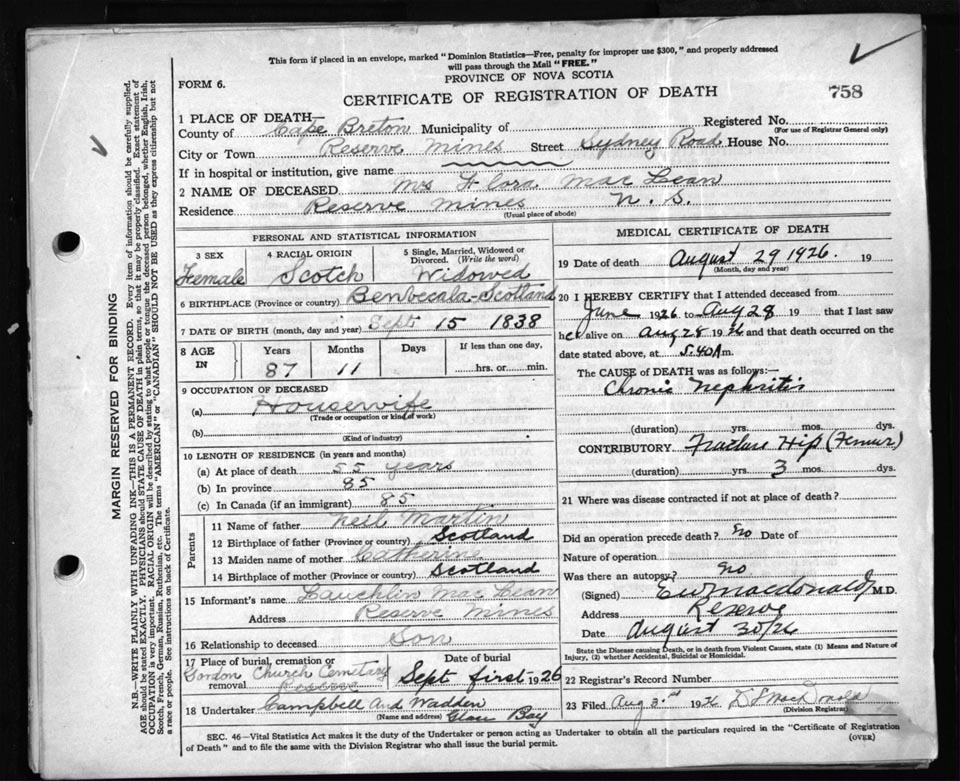 This form if placed in an envelope, marked "Dominion Statistics—Free, penalty for improper use $300," and properly addressed
will pass through the Mail "FREE."
PROVINCE OF NOVA SCOTIA
FORM 6.
CERTIFICATE OF REGISTRATION OF DEATH
758
1 PLACE OF DEATH—
Registered No.
(For use of Registrar General only)
County of Cape Breton Municipality of
City or Town Reserve Mines Street Sydney Road House No.
If in hospital or institution, give name
2 NAME OF DECEASED Mrs Flora MacLean
Residence Reserve Mines N. S.
(Usual place of abode)
PERSONAL AND STATISTICAL INFORMATION
3 SEX Female
4 RACIAL ORIGIN Scotch
5 Single, Married, Widowed or Divorced. (Write the word) Widowed
6 BIRTHPLACE (Province or country) Benbecala-Scotland
7 DATE OF BIRTH (month, day and year) Sept 15 1838
8 AGE IN
Years Months Days If less than one day,
87 11 hrs. or min.
9 OCCUPATION OF DECEASED
(a) Housewife
(Trade or occupation or kind of work)
(b)
(Kind of industry)
10 LENGTH OF RESIDENCE (in years and months)
(a) At place of death 55 years
(b) In province 85
(c) In Canada (if an immigrant) 85
Parents
11 Name of father Neil Martin
12 Birthplace of father (Province or country) Scotland
13 Maiden name of mother Catherine
14 Birthplace of mother (Province or country) Scotland
15 Informant's name Lauchlin MacLean
Address Reserve Mines
16 Relationship to deceased Son
17 Place of burial, cremation or removal Gordon Church Cemetary
Date of burial Sept first 1926
18 Undertaker Campbell and Wadden
(Name and address) Glace Bay
MEDICAL CERTIFICATE OF DEATH
19 Date of death August 29 1926. 19
(Month, day and year)
20 I HEREBY CERTIFY that I attended deceased from
June 1926 to Aug 28 19 that I last saw
her alive on Aug 28 1926 and that death occurred on the
date stated above, at 5.40 A m.
The CAUSE of DEATH was as follows:—
Chronic Nephritis
(duration) yrs. mos. dys.
CONTRIBUTORY Fracture Hip (Femur)
(duration) yrs. 3 mos. dys.
21 Where was disease contracted if not at place of death?
Did an operation precede death? No Date of
Nature of operation
Was there an autopsy? No
(Signed) Macdonald M.D.
Address Reserve
Date August 30/26
State the Disease causing Death, or in death from Violent Causes, state (1) Means and Nature of
Injury, (2) whether Accidental, Suicidal or Homicidal.
22 Registrar's Record Number
23 Filed Aug 3 1926 MacDonald
(Division Registrar)
SEC. 46—Vital Statistics Act makes it the duty of the Undertaker or person acting as Undertaker to obtain all the particulars required in the "Certificate of Registration
of Death" and to file the same with the Division Registrar who shall issue the burial permit.
(OVER)
MARGIN RESERVED FOR BINDING
N.B.—WRITE PLAINLY WITH UNFADING INK—THIS IS A PERMANENT RECORD. Every item of information should be carefully supplied.
AGE should be stated EXACTLY. PHYSICIANS should STATE CAUSE OF DEATH in plain terms, so that it may be properly classified. Exact statement of
OCCUPATION is very important. RACIAL ORIGIN will be described by stating to what people or tongue the deceased person belonged, whether English, Irish,
Scotch, French, German, Russian, Ruthenian, etc. The terms "AMERICAN" or "CANADIAN" SHOULD NOT BE USED as they express citizenship but not
a race or people. See instructions on back of Certificate.